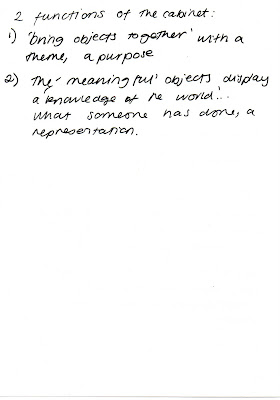 2 functions of the cabinet:
1) 'bring objects together' with a
theme, a purpose
2) The 'meaningful' objects display
a 'knowledge of he world'...
what someone has done, a
representation.